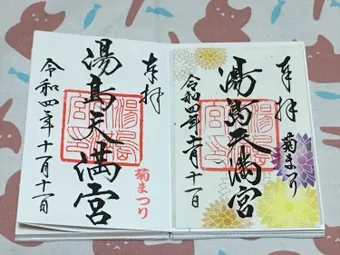 奉拝
菊まつり
湯島天満宮
令和四年十一月十一日
奉拝
菊まつり
湯島天満宮
令和四年十一月十一日